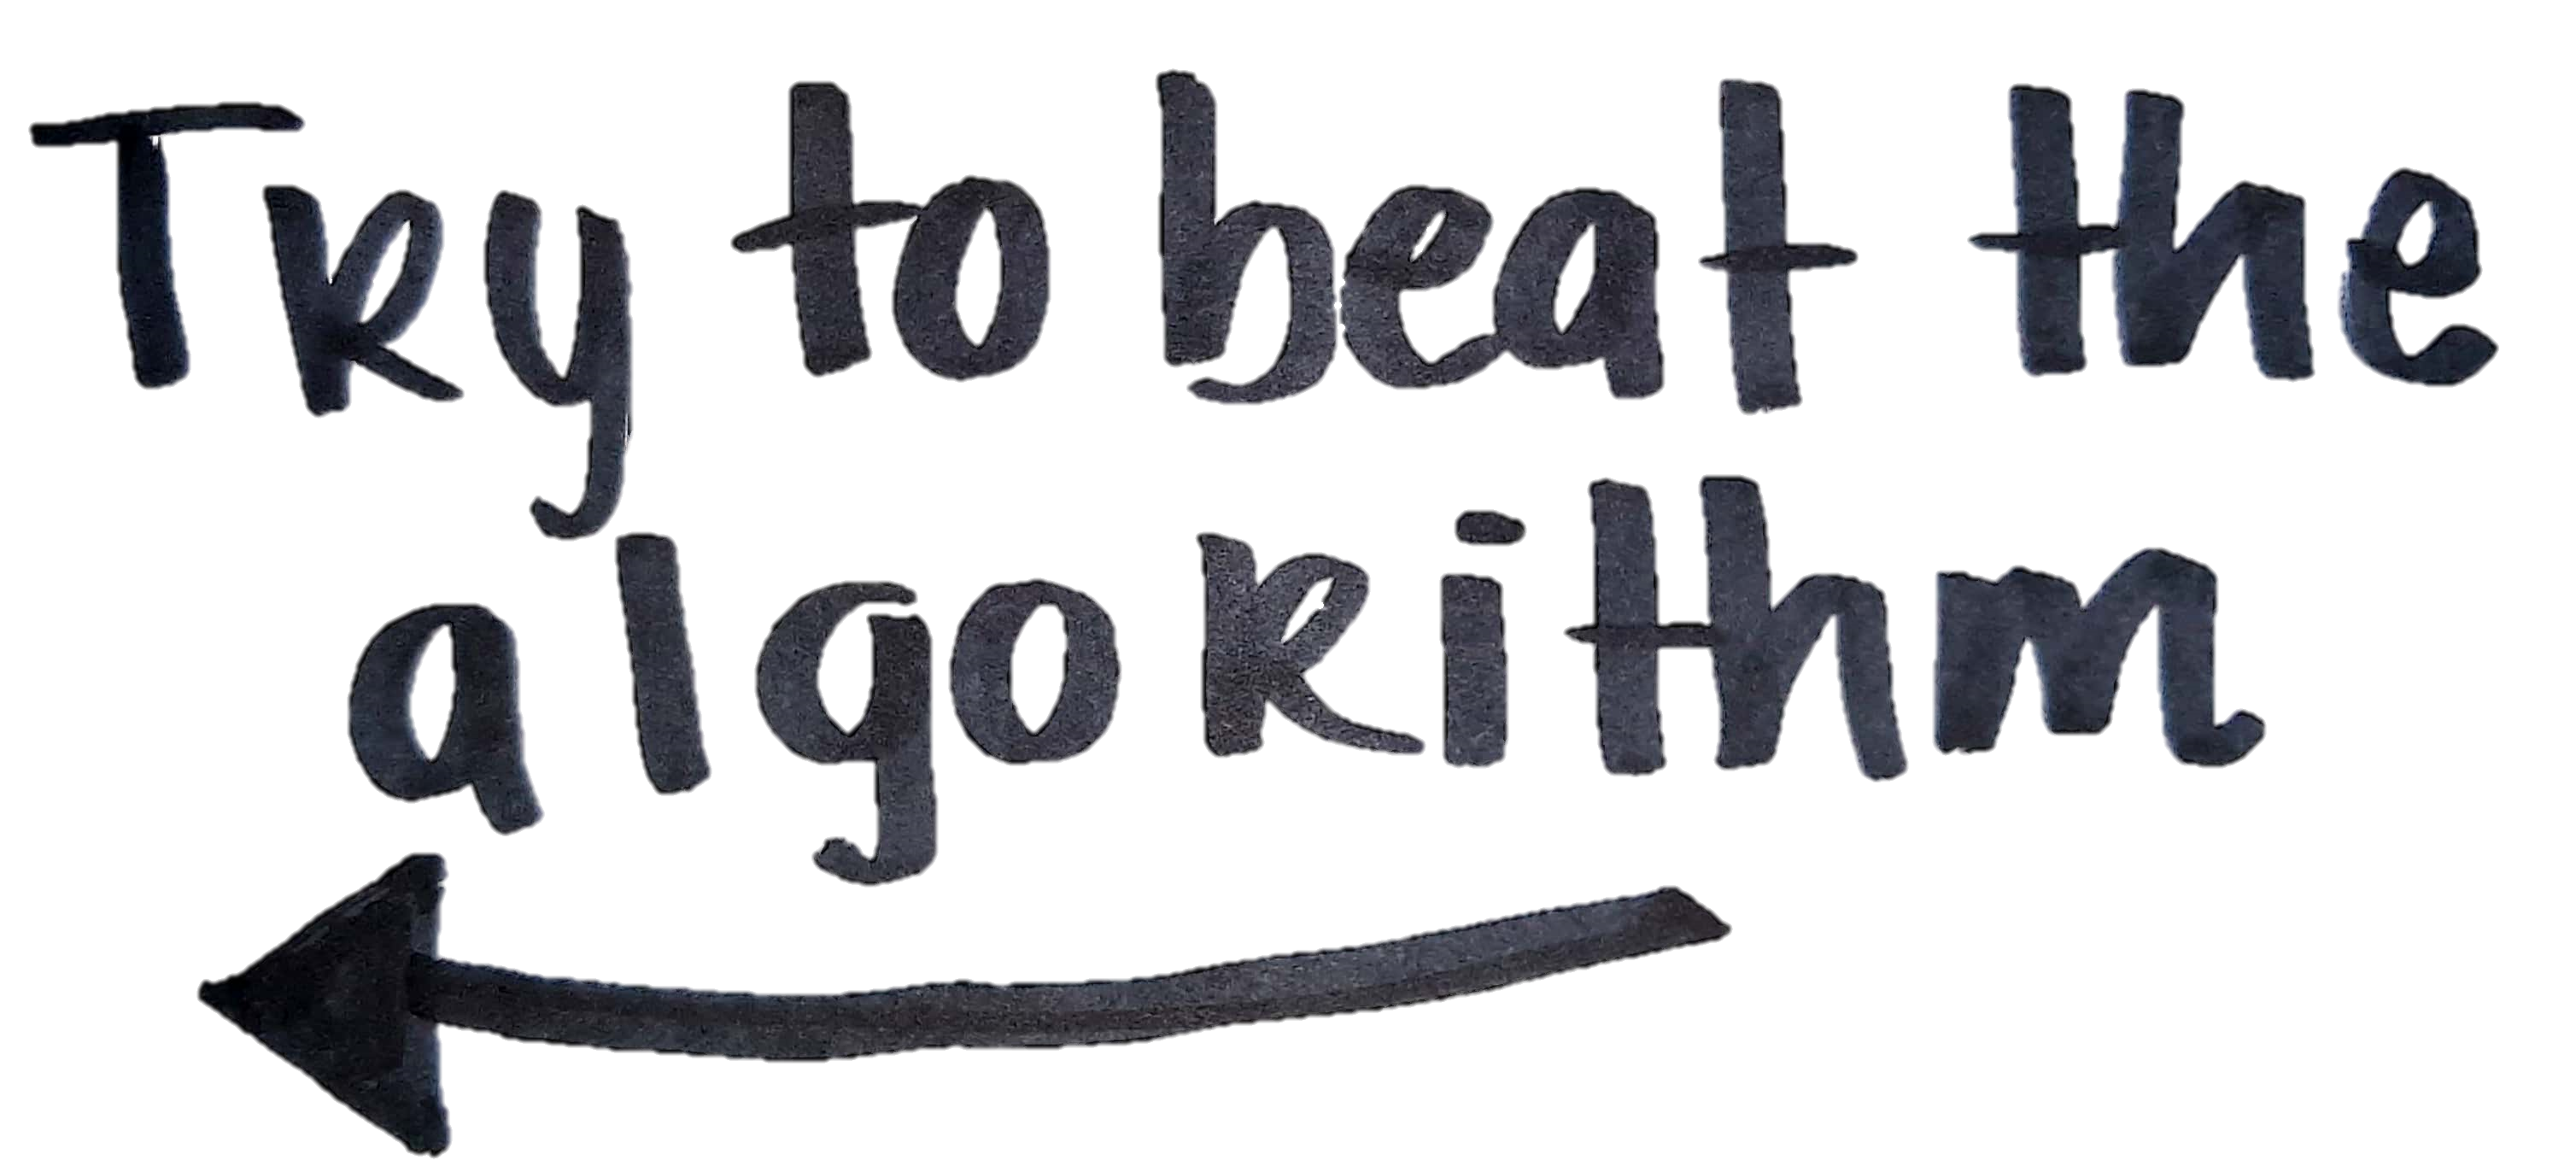 Try to beat the
algorithm